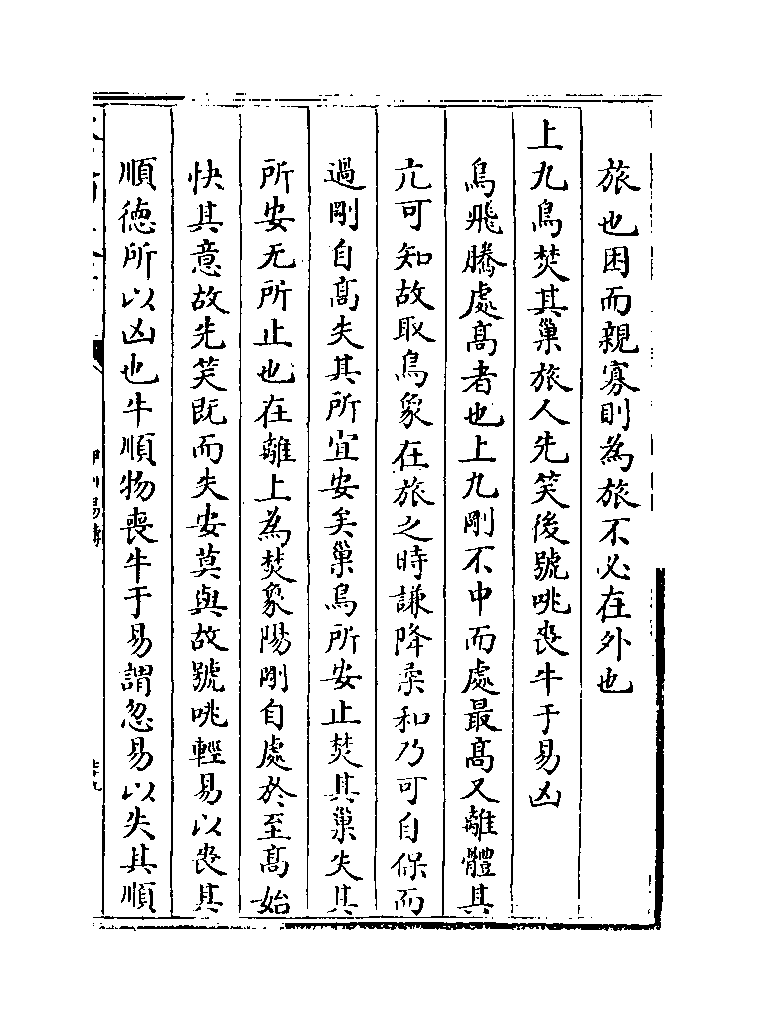 旅也困而親寡則為旅不必在外也
上九鳥焚其巢旅人先笑後號咷喪牛于易凶
鳥飛騰處髙者也上九剛不中而處最髙又離體其
亢可知故取鳥象在旅之時謙降柔和乃可自保而
過剛自髙失其所宜安矣巢鳥所安止焚其巢失其
所安无所止也在離上為焚象陽剛自處於至髙始
快其意故先笑既而失安莫與故號咷輕易以喪其
順德所以凶也牛順物喪牛于易謂忽易以失其順
伊川易傳